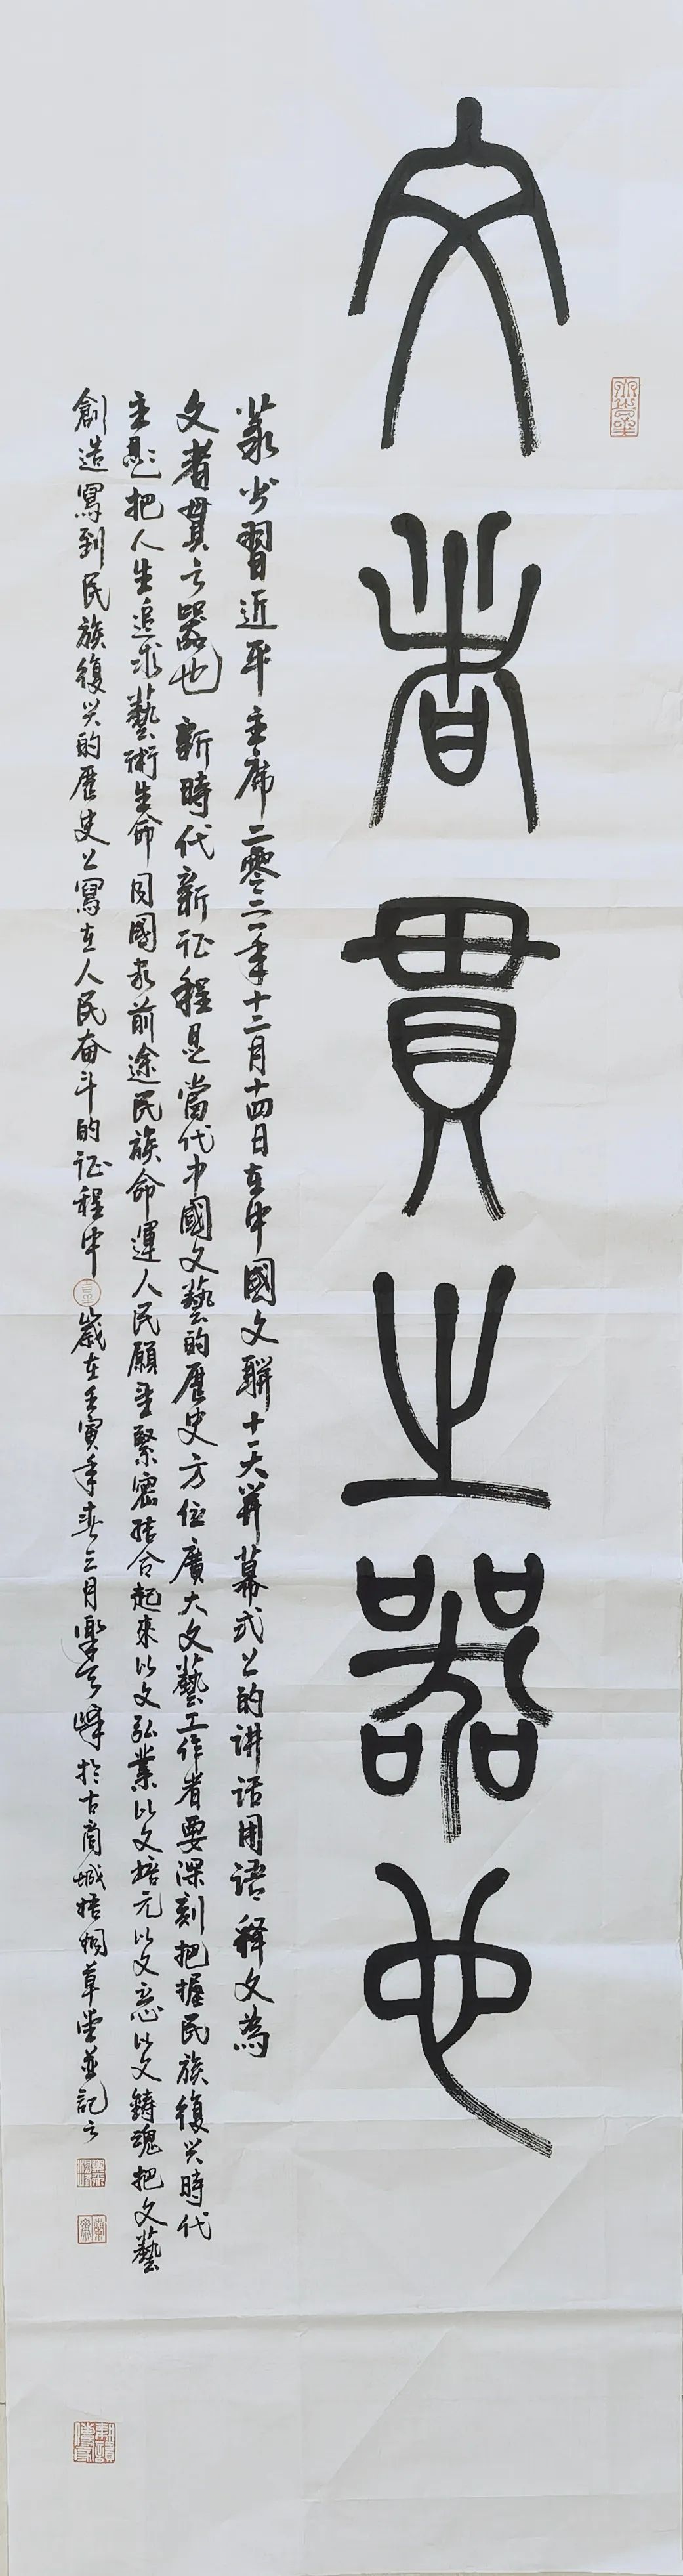 文者貫之器也
篆书習近平主席二零二一年十二月十四日在中國文聯十一大開幕式上的讲话用語釋文為
文者貫之器也新時代新征程是當代中國文藝的歷史方位廣大文藝工作者要深刻把握民族復兴時代
主題把人生追求藝術生命同國家前途民族命運人民願望緊密结合起來以文弘業以文培元以文立心以文鑄魂把文藝
創造寫到民族復兴的歷史上寫在人民奋斗的征程中歲在壬寅年春三月樂天峰於古商城梧桐草堂並記之